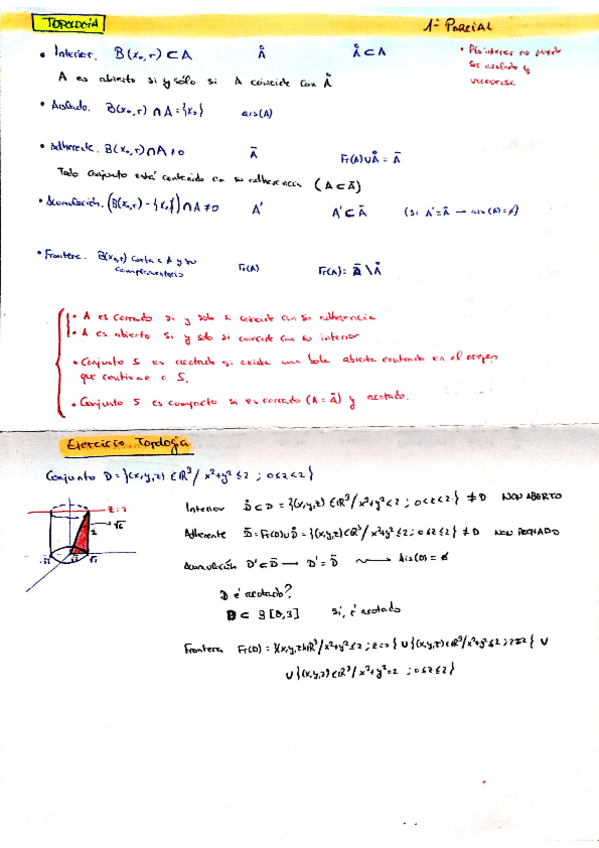 TOPOLOGÍA
1º PARCIAL
• Interior. B(x₀,r) ⊂ A    Å    Å ⊂ A
• Pto interior no puede
ser aislado y
viceversa
A es abierto si y sólo si A coincide con Å
• Aislado. B(x₀,r) ∩ A = {x₀}    ais(A)
• Adherente. B(x₀,r) ∩ A ≠ 0    Ā    Fr(A) ∪ Å = Ā
Todo conjunto está contenido en su adherencia (A ⊂ Ā)
• Acumulación. (B(x₀,r) - {x₀}) ∩ A ≠ 0    A'    A' ⊂ Ā    (Si A' = Ā → ais(A) = ∅)
• Frontera. B(x₀,r) corta a A y su
complementario    Fr(A)    Fr(A) = Ā \ Å
• A es cerrado si y solo si coincide con su adherencia
• A es abierto si y solo si coincide con su interior
• Conjunto S es acotado si existe una bola abierta centrada en el origen
que contiene a S.
• Conjunto S es compacto si es cerrado (A = Ā) y acotado.
Ejercicio Topología
Conjunto D = {(x,y,z) ∈ ℝ³ / x²+y² ≤ 2 ; 0 ≤ z < 2}
Interior D̊ ⊂ D = {(x,y,z) ∈ ℝ³ / x²+y² < 2 ; 0 < z < 2} ≠ D NON ABERTO
Adherente D̄ = Fr(D) ∪ D̊ = {(x,y,z) ∈ ℝ³ / x²+y² ≤ 2 ; 0 ≤ z ≤ 2} ≠ D NON PECHADO
Acumulación D' ⊂ D̄ → D' = D̄ → Ais(D) = ∅
z=2
√6
2
-√2 √2 √2
D é acotado?
D ⊂ B[0,3]    Si, é acotado
Frontera Fr(D) = {(x,y,z) ∈ ℝ³ / x²+y² ≤ 2 ; z=0} ∪ {(x,y,z) ∈ ℝ³ / x²+y² ≤ 2 ; z=2} ∪
∪ {(x,y,z) ∈ ℝ³ / x²+y² = 2 ; 0 ≤ z ≤ 2}